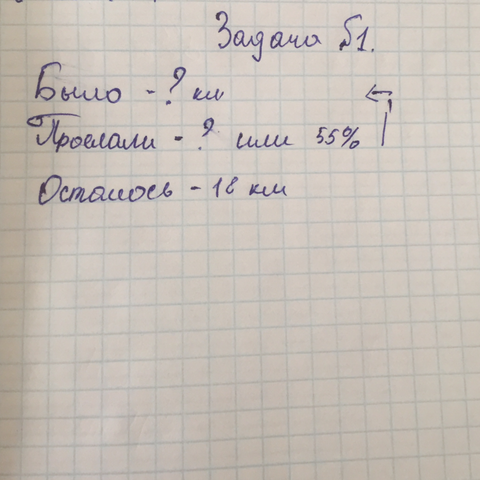 Задача Б1.
Было - ? км
Проехали - ? или 55%
Осталось - 18 км